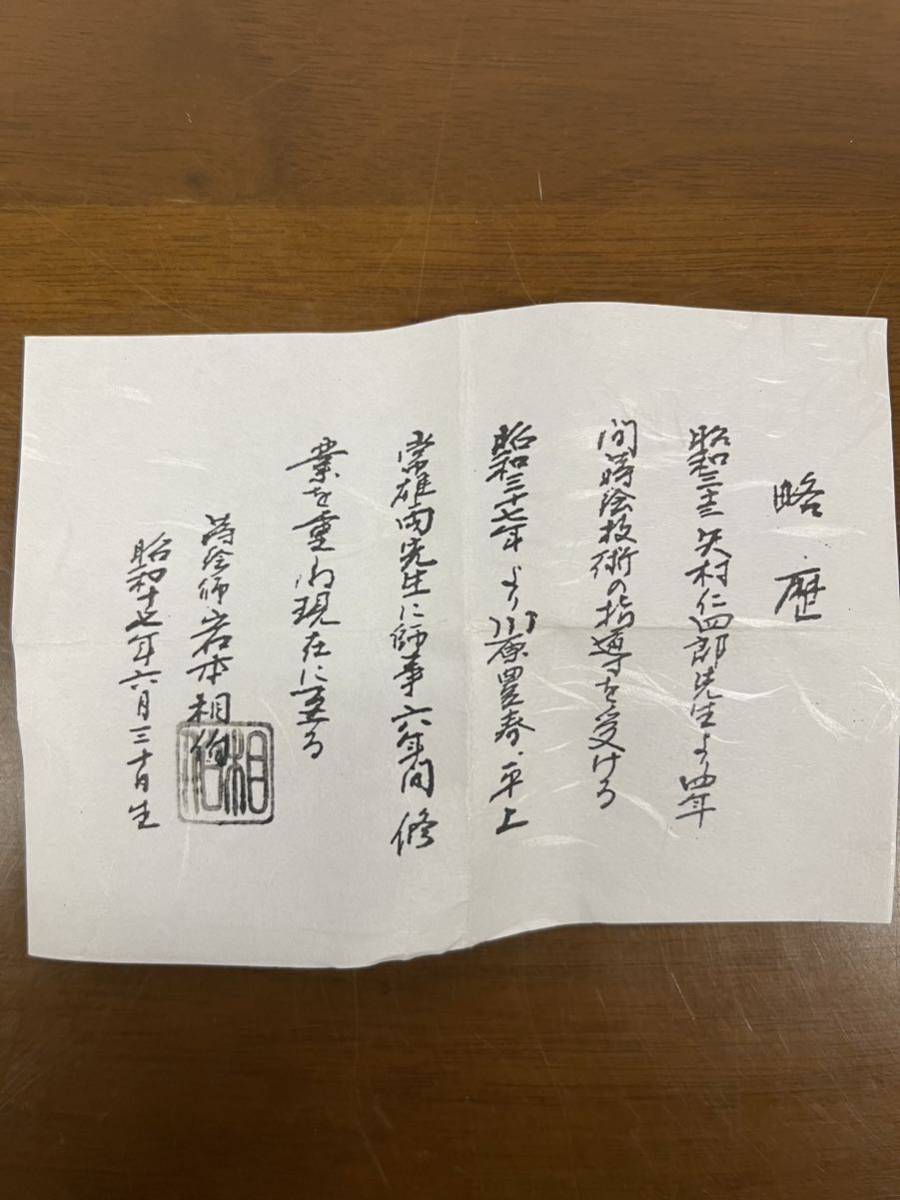 略歴
昭和三十三 矢村仁四郎先生より四年
間蒔絵技術の指導を受ける
昭和三十七年より川原豊春、平上
常雄両先生に師事六年間修
業を重ね現在に至る
蒔絵師 岩本相
昭和十七年六月三十日生
相